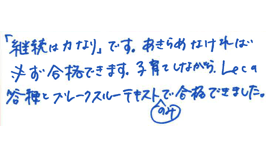 「継続は力なり」です。あきらめなければ
必ず合格できます。子育てしながら、Leca
答練とブレークスルーテキストで合格できました。
のみ